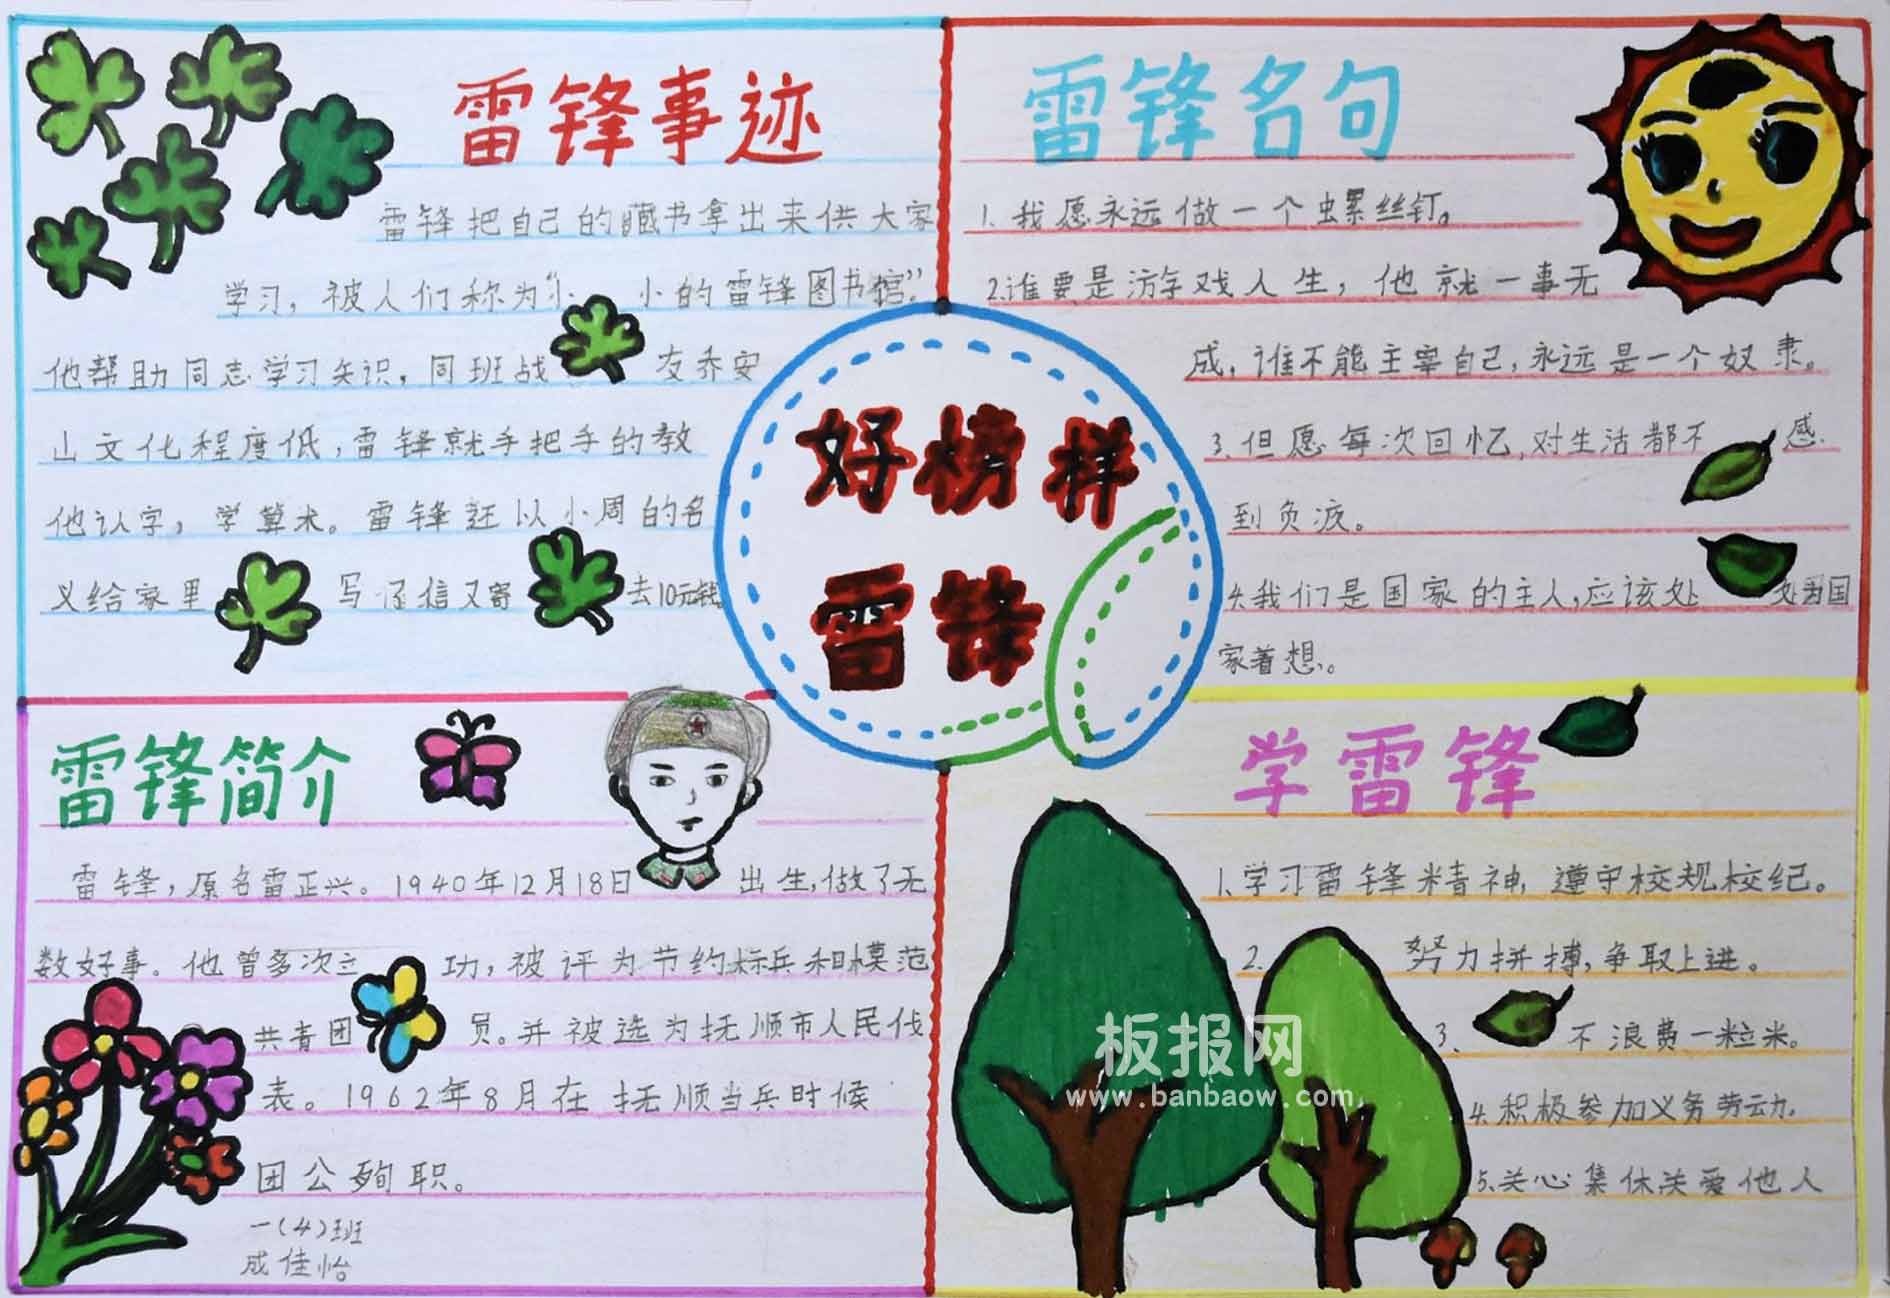 雷锋事迹
雷锋把自己的藏书拿出来供大家
学习，被人们称为“小 小的雷锋图书馆”。
他帮助同志学习知识，同班战 友乔安
山文化程度低，雷锋就手把手的教
他认字，学算术。雷锋还以小周的名
义给家里 写了信又寄 去10元钱。
雷锋名句
1.我愿永远做一个螺丝钉。
2.谁要是游戏人生，他就一事无
成，谁不能主宰自己，永远是一个奴隶。
3.但愿每次回忆，对生活都不 感
到负疚。
4.我们是国家的主人，应该处 处为国
家着想。
好榜样
雷锋
雷锋简介
雷锋，原名雷正兴。1940年12月18日 出生，做了无
数好事。他曾多次立 功，被评为节约标兵和模范
共青团 员。并被选为抚顺市人民代
表。1962年8月在抚顺当兵时候
因公殉职。
一(4)班
成佳怡
学雷锋
1.学习雷锋精神，遵守校规校纪。
2. 努力拼搏，争取上进。
3. 不浪费一粒米。
4.积极参加义务劳动。
5.关心集休关爱他人
板报网
www.banbaow.com